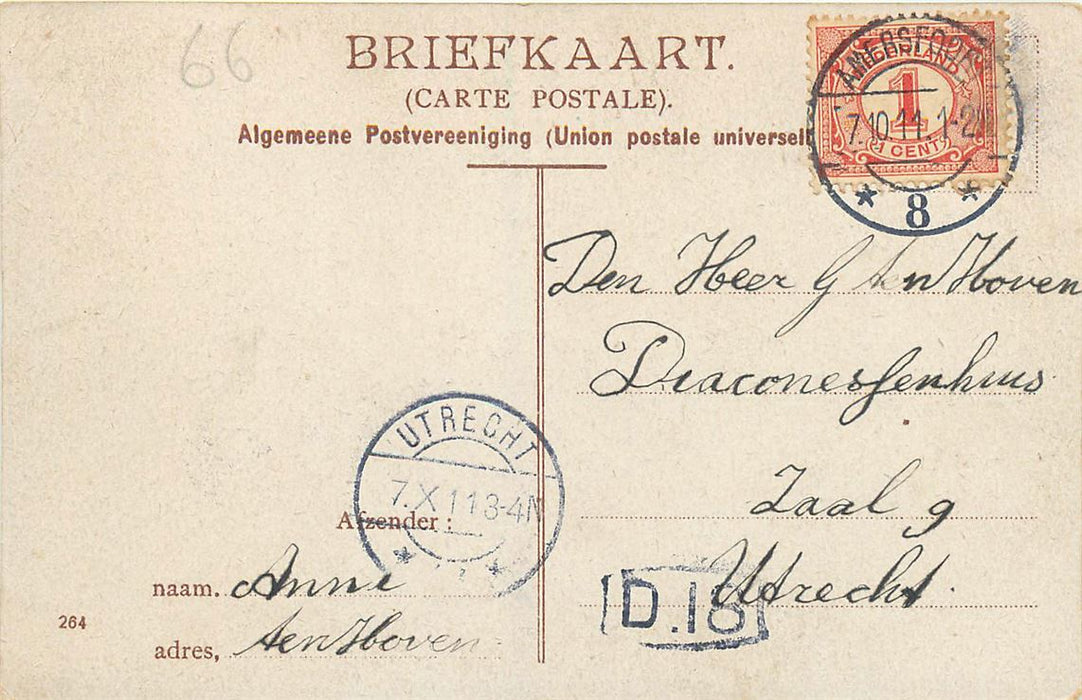 66
BRIEFKAART.
(CARTE POSTALE).
Algemeene Postvereeniging (Union postale universell
AMERSFOORT
7.10.11.1-2
8
NEDERLAND
1
1 CENT
Den Heer G ten Hoven
Diaconessenhuis
Zaal 9
Utrecht
UTRECHT
7.X.11 3-4N
Afzender:
naam. Anna
adres, ten Hoven
264
D.18